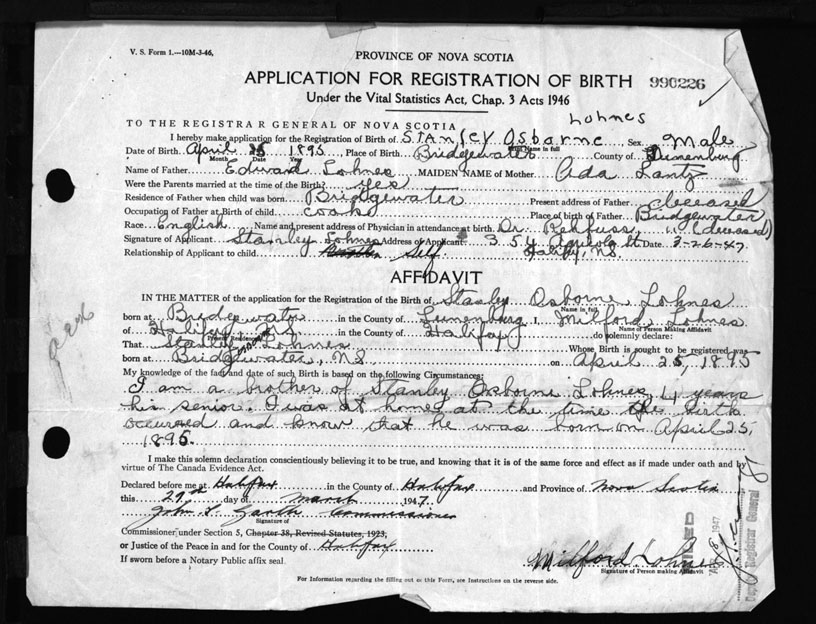 V. S. Form 1.—10M-3-46.
PROVINCE OF NOVA SCOTIA
APPLICATION FOR REGISTRATION OF BIRTH 990226
Under the Vital Statistics Act, Chap. 3 Acts 1946
Lohnes
TO THE REGISTRAR GENERAL OF NOVA SCOTIA
I hereby make application for the Registration of Birth of STANLEY Osborne Sex Male
Name in full
Date of Birth April 25 1895 Place of Birth Bridgewater County of Lunenburg
Month Date Year
Name of Father Edward Lohnes MAIDEN NAME of Mother Ada Lantz
Were the Parents married at the time of the Birth? yes
Residence of Father when child was born Bridgewater Present address of Father deceased
Occupation of Father at Birth of child Place of birth of Father Bridgewater
Race English Name and present address of Physician in attendance at birth Dr. (deceased)
Signature of Applicant Stanley Lohnes Address of Applicant 354 Agricola St. Date 3-26-47
Relationship of Applicant to child Self Halifax, N.S.
AFFIDAVIT
IN THE MATTER of the application for the Registration of the Birth of Stanley Osborne Lohnes
Name in full
born at Bridgewater in the County of Lunenburg I, Milford Lohnes
Name of Person Making Affidavit
of Halifax, N.S. in the County of Halifax do solemnly declare:
Present Residence
That Stanley Osborne Lohnes Whose Birth is sought to be registered was
born at Bridgewater, NS on April 25, 1895
My knowledge of the fact and date of such Birth is based on the following Circumstances:
I am a brother of Stanley Osborne Lohnes, 4 years
his senior. I was at home at the time the birth
occurred and know that he was born on April 25,
1895.
I make this solemn declaration conscientiously believing it to be true, and knowing that it is of the same force and effect as if made under oath and by
virtue of The Canada Evidence Act.
Declared before me at Halifax in the County of Halifax and Province of Nova Scotia
this 29th day of March 1947.
John Commissioner
Signature of
Commissioner under Section 5, Chapter 38, Revised Statutes, 1923,
or Justice of the Peace in and for the County of Halifax
If sworn before a Notary Public affix seal.
Milford Lohnes
Signature of Person making Affidavit
For Information regarding the filling out of this Form, see Instructions on the reverse side.
1947
Registrar General